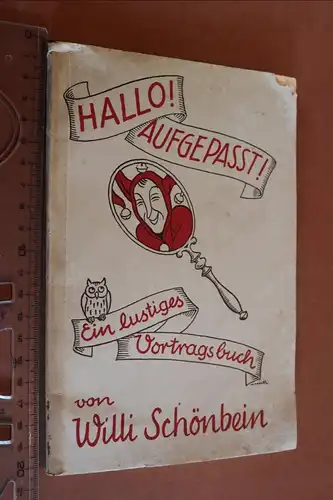 HALLO!
AUFGEPASST!
Ein lustiges
Vortragsbuch
von
Willi Schönbein